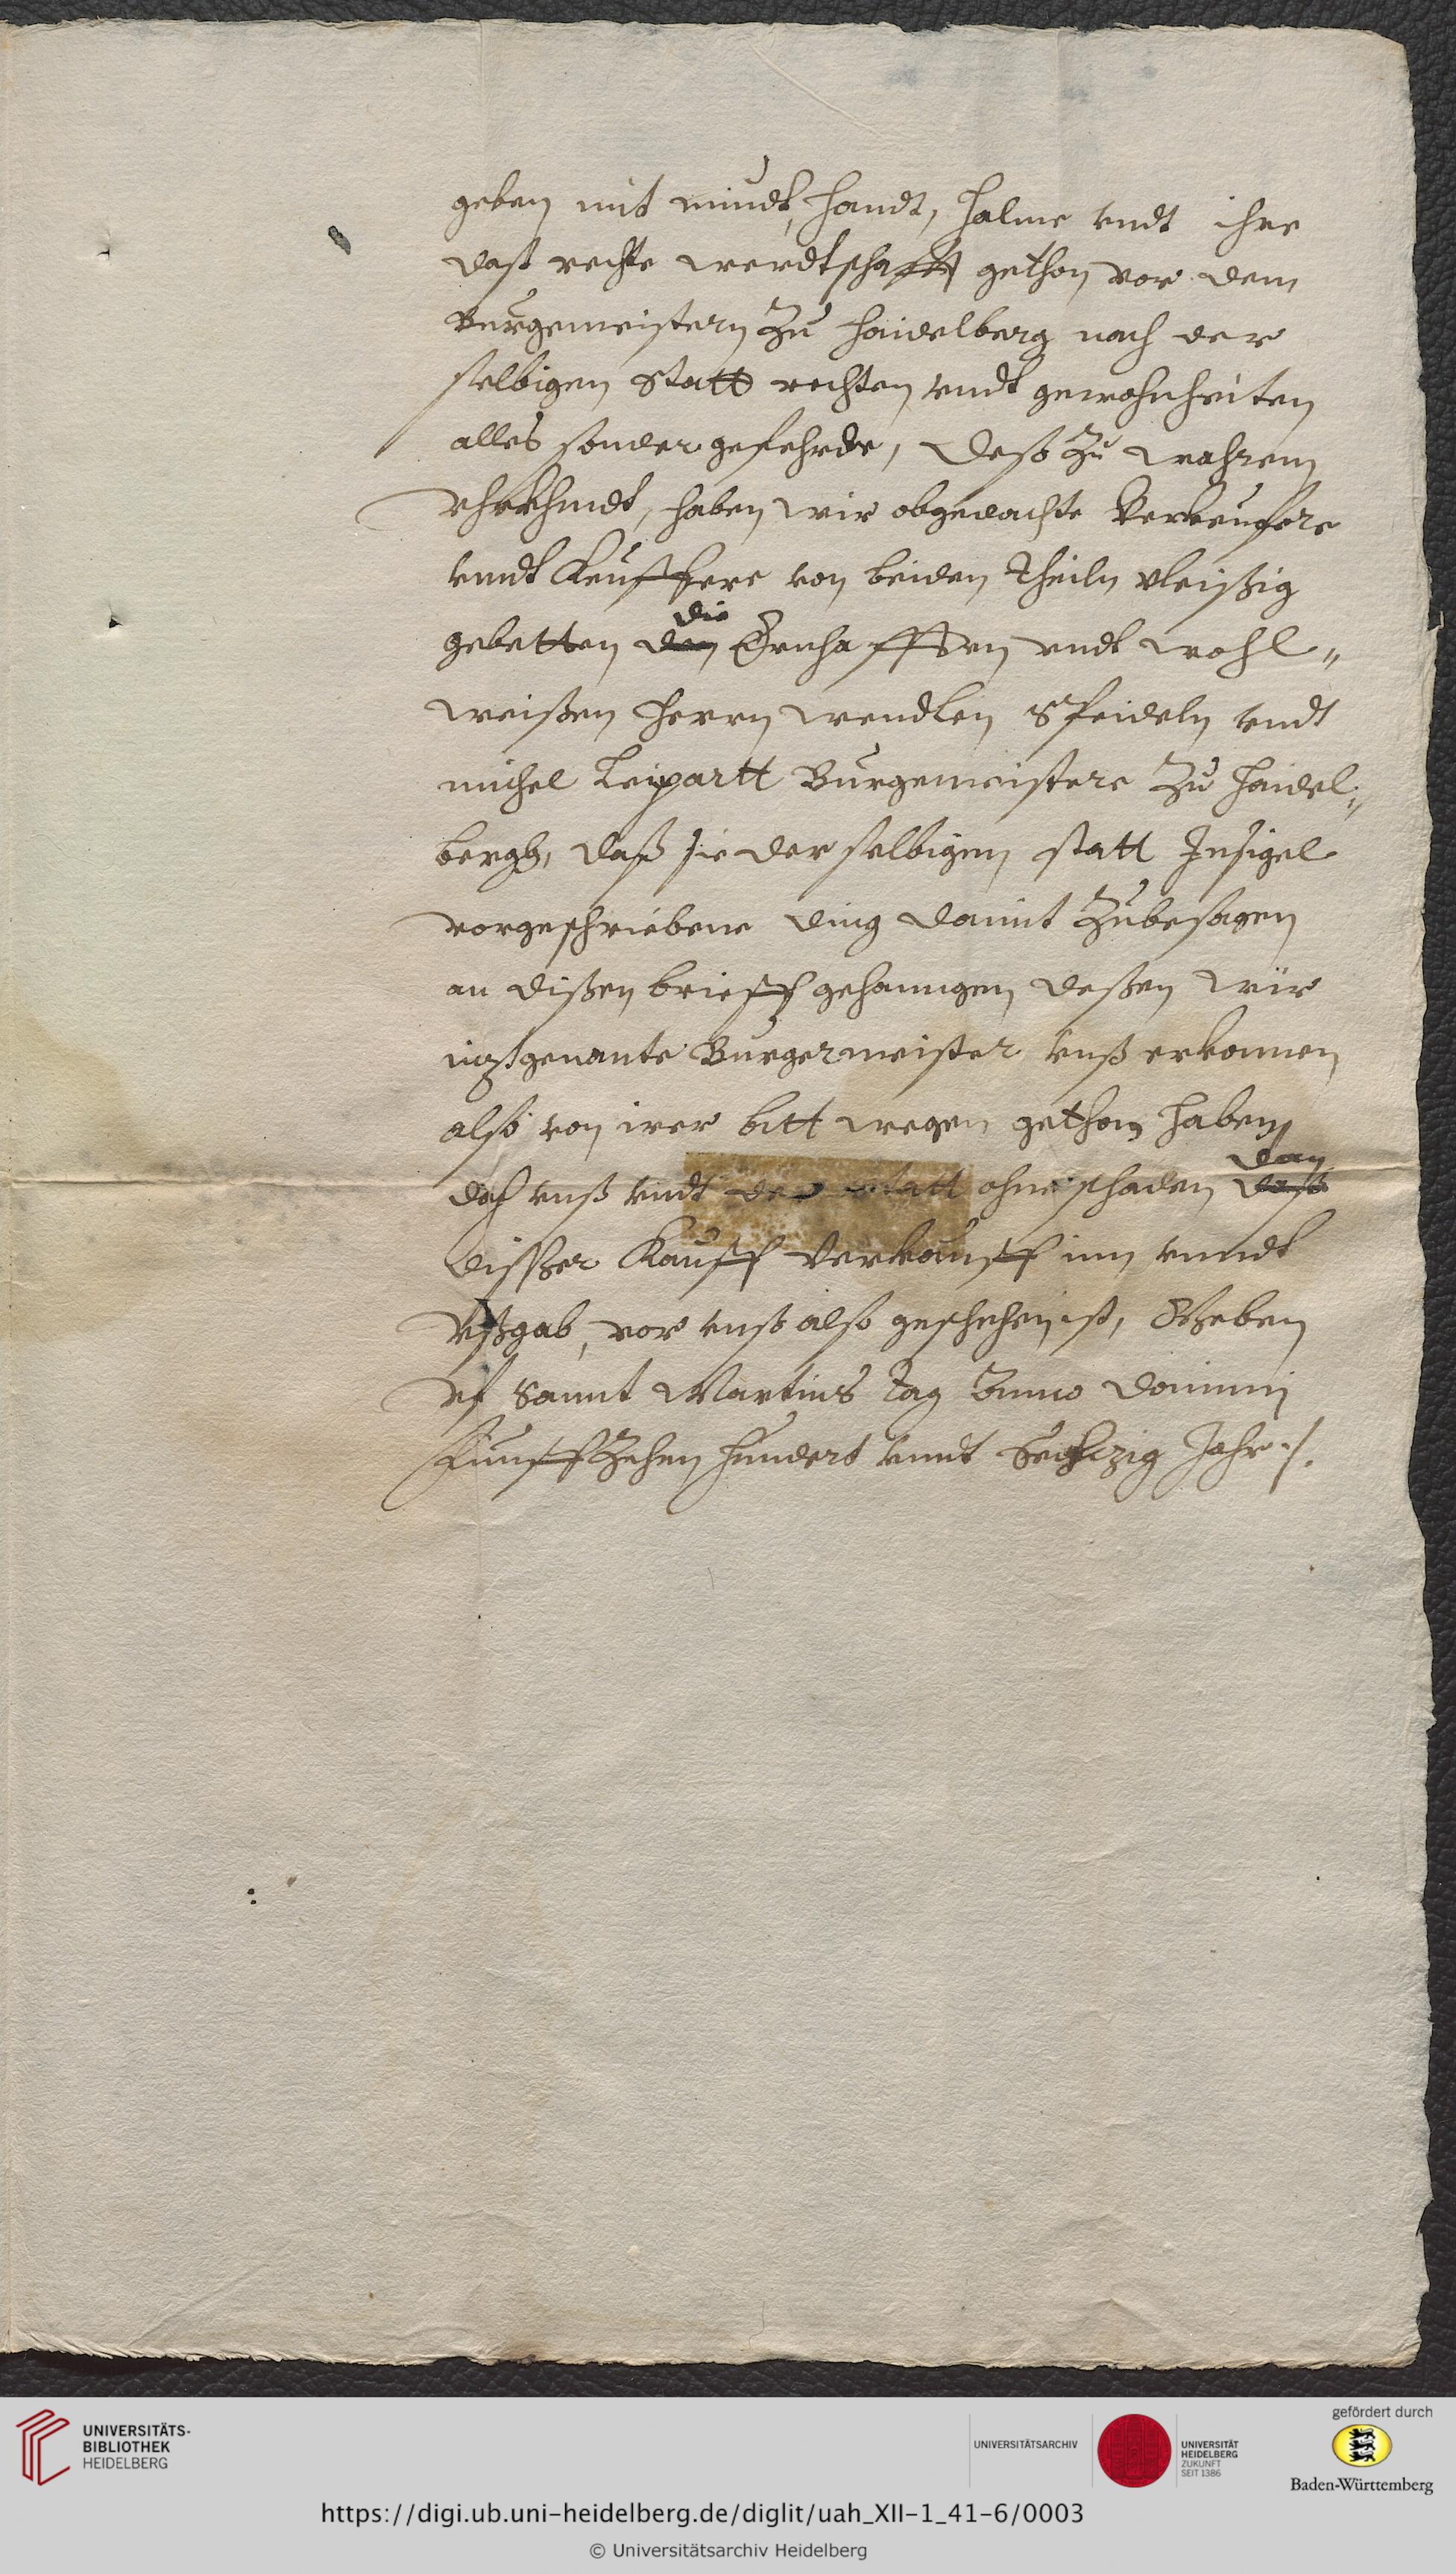 geben mit mundt, handt, halme vndt ihre
daß rechte werdtschafft gethon vor dem
Burgemeistern Zu Haidelberg nach der
selbigen Statt rechten vndt gewohnheiten
alles sonder gefehrde, Deß Zu wahrem
Vhrkhundt, haben wir obgedachte Verkeuffere
vnndt Keuffere von beiden Theiln vleißig
die
gebetten den Ernhafften vndt wohl„
weißen Herrn Wendlen Speideln vndt
Michel Leipartt Burgemeistere Zu Haidel„
bergh, daß sie der selbigen statt Insigel
vorgeschriebene ding damit Zubesagen
an dißen brieff gehanngen, deßen wür
iezgenante Burgermeister vnß erkennen
also von irer bitt wegen gethon haben,
dan
doch vnß vndt der statt ohne schaden daß
dißer Kauff Verkauff inn vnndt
Vßgab, vor vnß also geschehen ist, Geben
vf Sannt Martins Tag Anno Domini
Funffzehen hundert vnnt Sechzig Jahr ./.
UNIVERSITÄTS-
BIBLIOTHEK
HEIDELBERG
UNIVERSITÄTSARCHIV
UNIVERSITÄT
HEIDELBERG
ZUKUNFT
SEIT 1386
gefördert durch
Baden-Württemberg
https://digi.ub.uni-heidelberg.de/diglit/uah_XII-1_41-6/0003
© Universitätsarchiv Heidelberg